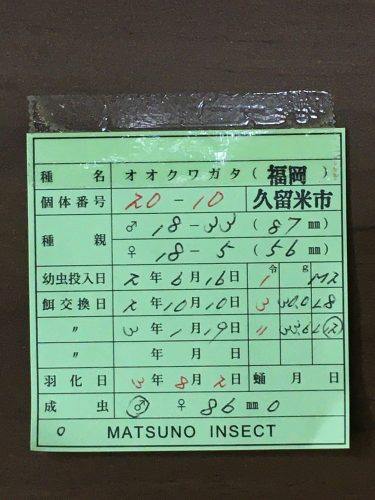 種名 オオクワガタ(福岡
個体番号 20-10 久留米市
種親 ♂ 18-33 (87㎜)
♀ 18-5 (56㎜)
幼虫投入日 2年6月16日 1令 g M2
餌交換日 2年10月10日 3 30.0 L8
〃 3年1月19日 〃 33.6 L⑫
〃 年月日
羽化日 3年8月2日 蛹月日
成虫 ♂ ♀ 86㎜ 0
0 MATSUNO INSECT